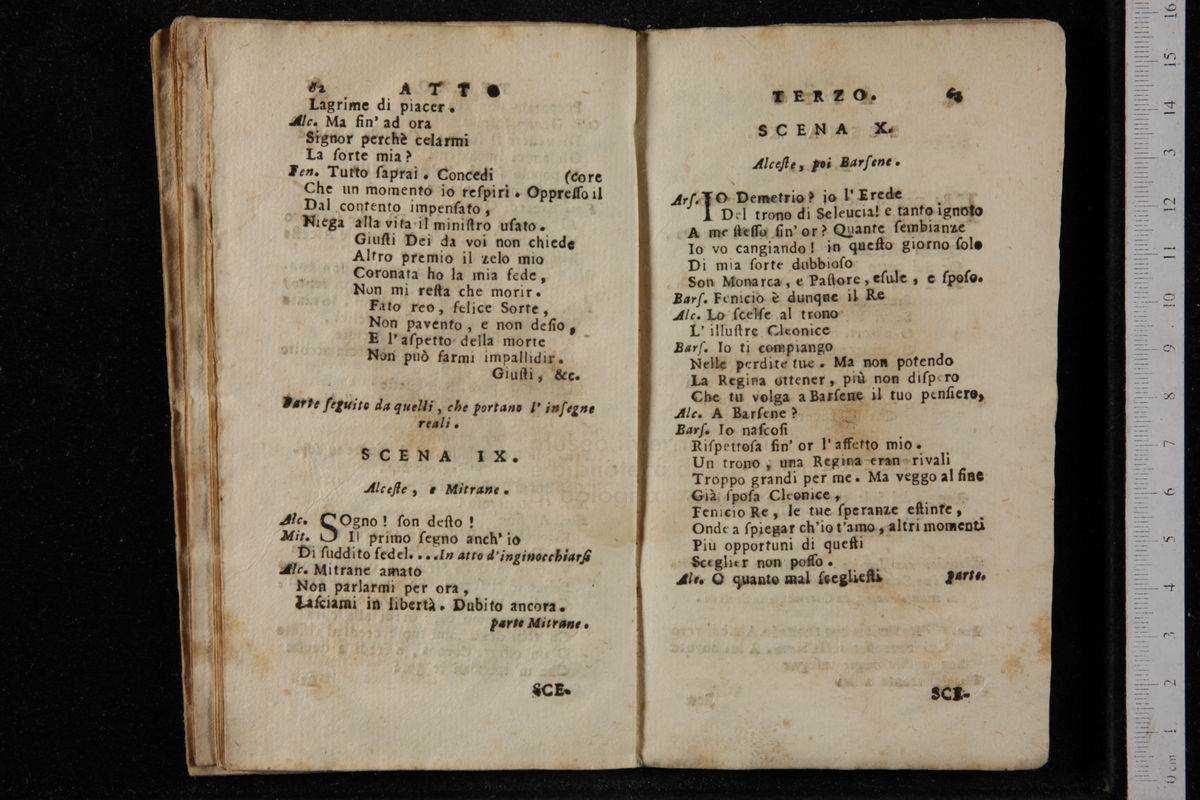 62 ATTO
Lagrime di piacer.
Alc. Ma ſin' ad ora
Signor perchè celarmi
La ſorte mia?
Fen. Tutto ſaprai. Concedi (core
Che un momento io reſpiri. Oppreſſo il
Dal contento impenſato,
Niega alla vita il miniſtro uſato.
Giuſti Dei da voi non chiede
Altro premio il zelo mio
Coronata ho la mia fede,
Non mi reſta che morir.
Fato reo, felice Sorte,
Non pavento, e non deſio,
E l'aſpetto della morte
Non può farmi impallidir.
Giuſti, &c.
Parte ſeguito da quelli, che portano l' inſegne
reali.
SCENA IX.
Alceſte, e Mitrane.
Alc. SOgno! ſon deſto!
Mit. Il primo ſegno anch' io
Di ſuddito fedel....In atto d'inginocchiarſi
Alc. Mitrane amato
Non parlarmi per ora,
Laſciami in libertà. Dubito ancora.
parte Mitrane.
SCE-
TERZO. 63
SCENA X.
Alceſte, poi Barſene.
Arſ. IO Demetrio? io l' Erede
Del trono di Seleucia! e tanto ignoto
A me ſteſſo ſin' or? Quante ſembianze
Io vo cangiando! in queſto giorno ſolo
Di mia ſorte dubbioſo
Son Monarca, e Paſtore, eſule, e ſpoſo.
Barſ. Fenicio è dunque il Re
Alc. Lo ſcelſe al trono
L' illuſtre Cleonice
Barſ. Io ti compiango
Nelle perdite tue. Ma non potendo
La Regina ottener, più non diſpero
Che tu volga a Barſene il tuo penſiero,
Alc. A Barſene?
Barſ. Io naſcoſi
Riſpettoſa ſin' or l' affetto mio.
Un trono, una Regina eran rivali
Troppo grandi per me. Ma veggo al fine
Già ſpoſa Cleonice,
Fenicio Re, le tue ſperanze eſtinte,
Onde a ſpiegar ch'io t'amo, altri momenti
Più opportuni di queſti
Sceglier non poſſo.
Alc. O quanto mal ſceglieſti. parte.
SCE-